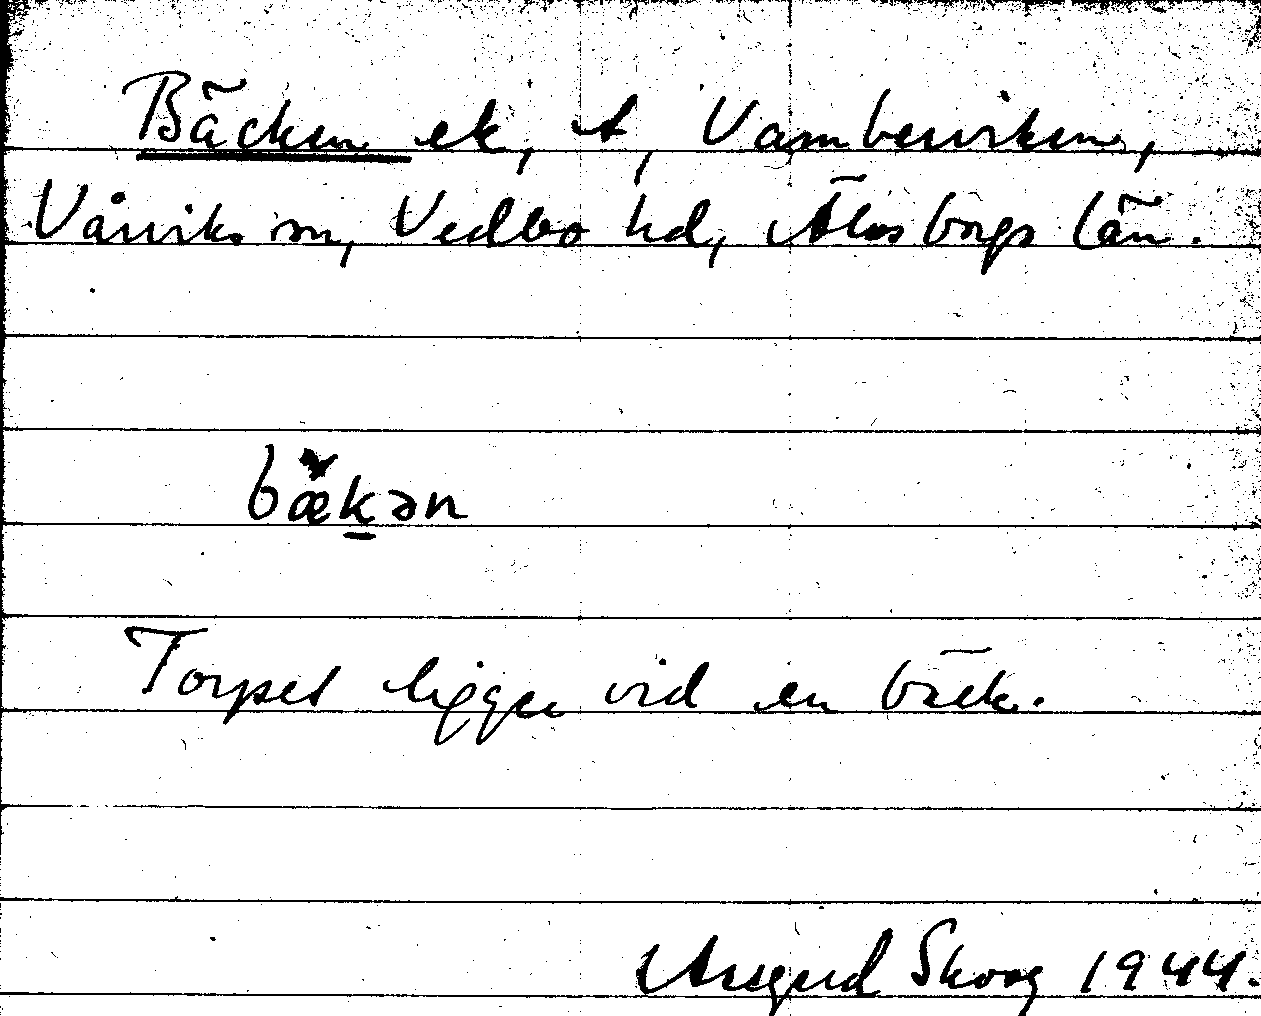 Bäcken ek, t, Vambersviken,
Vårviks sn, Vedbo hd, Älvsborgs län.
bæ̆k̲ən
Torpet ligger vid en bäck.
Assgerd Skoog 1944.